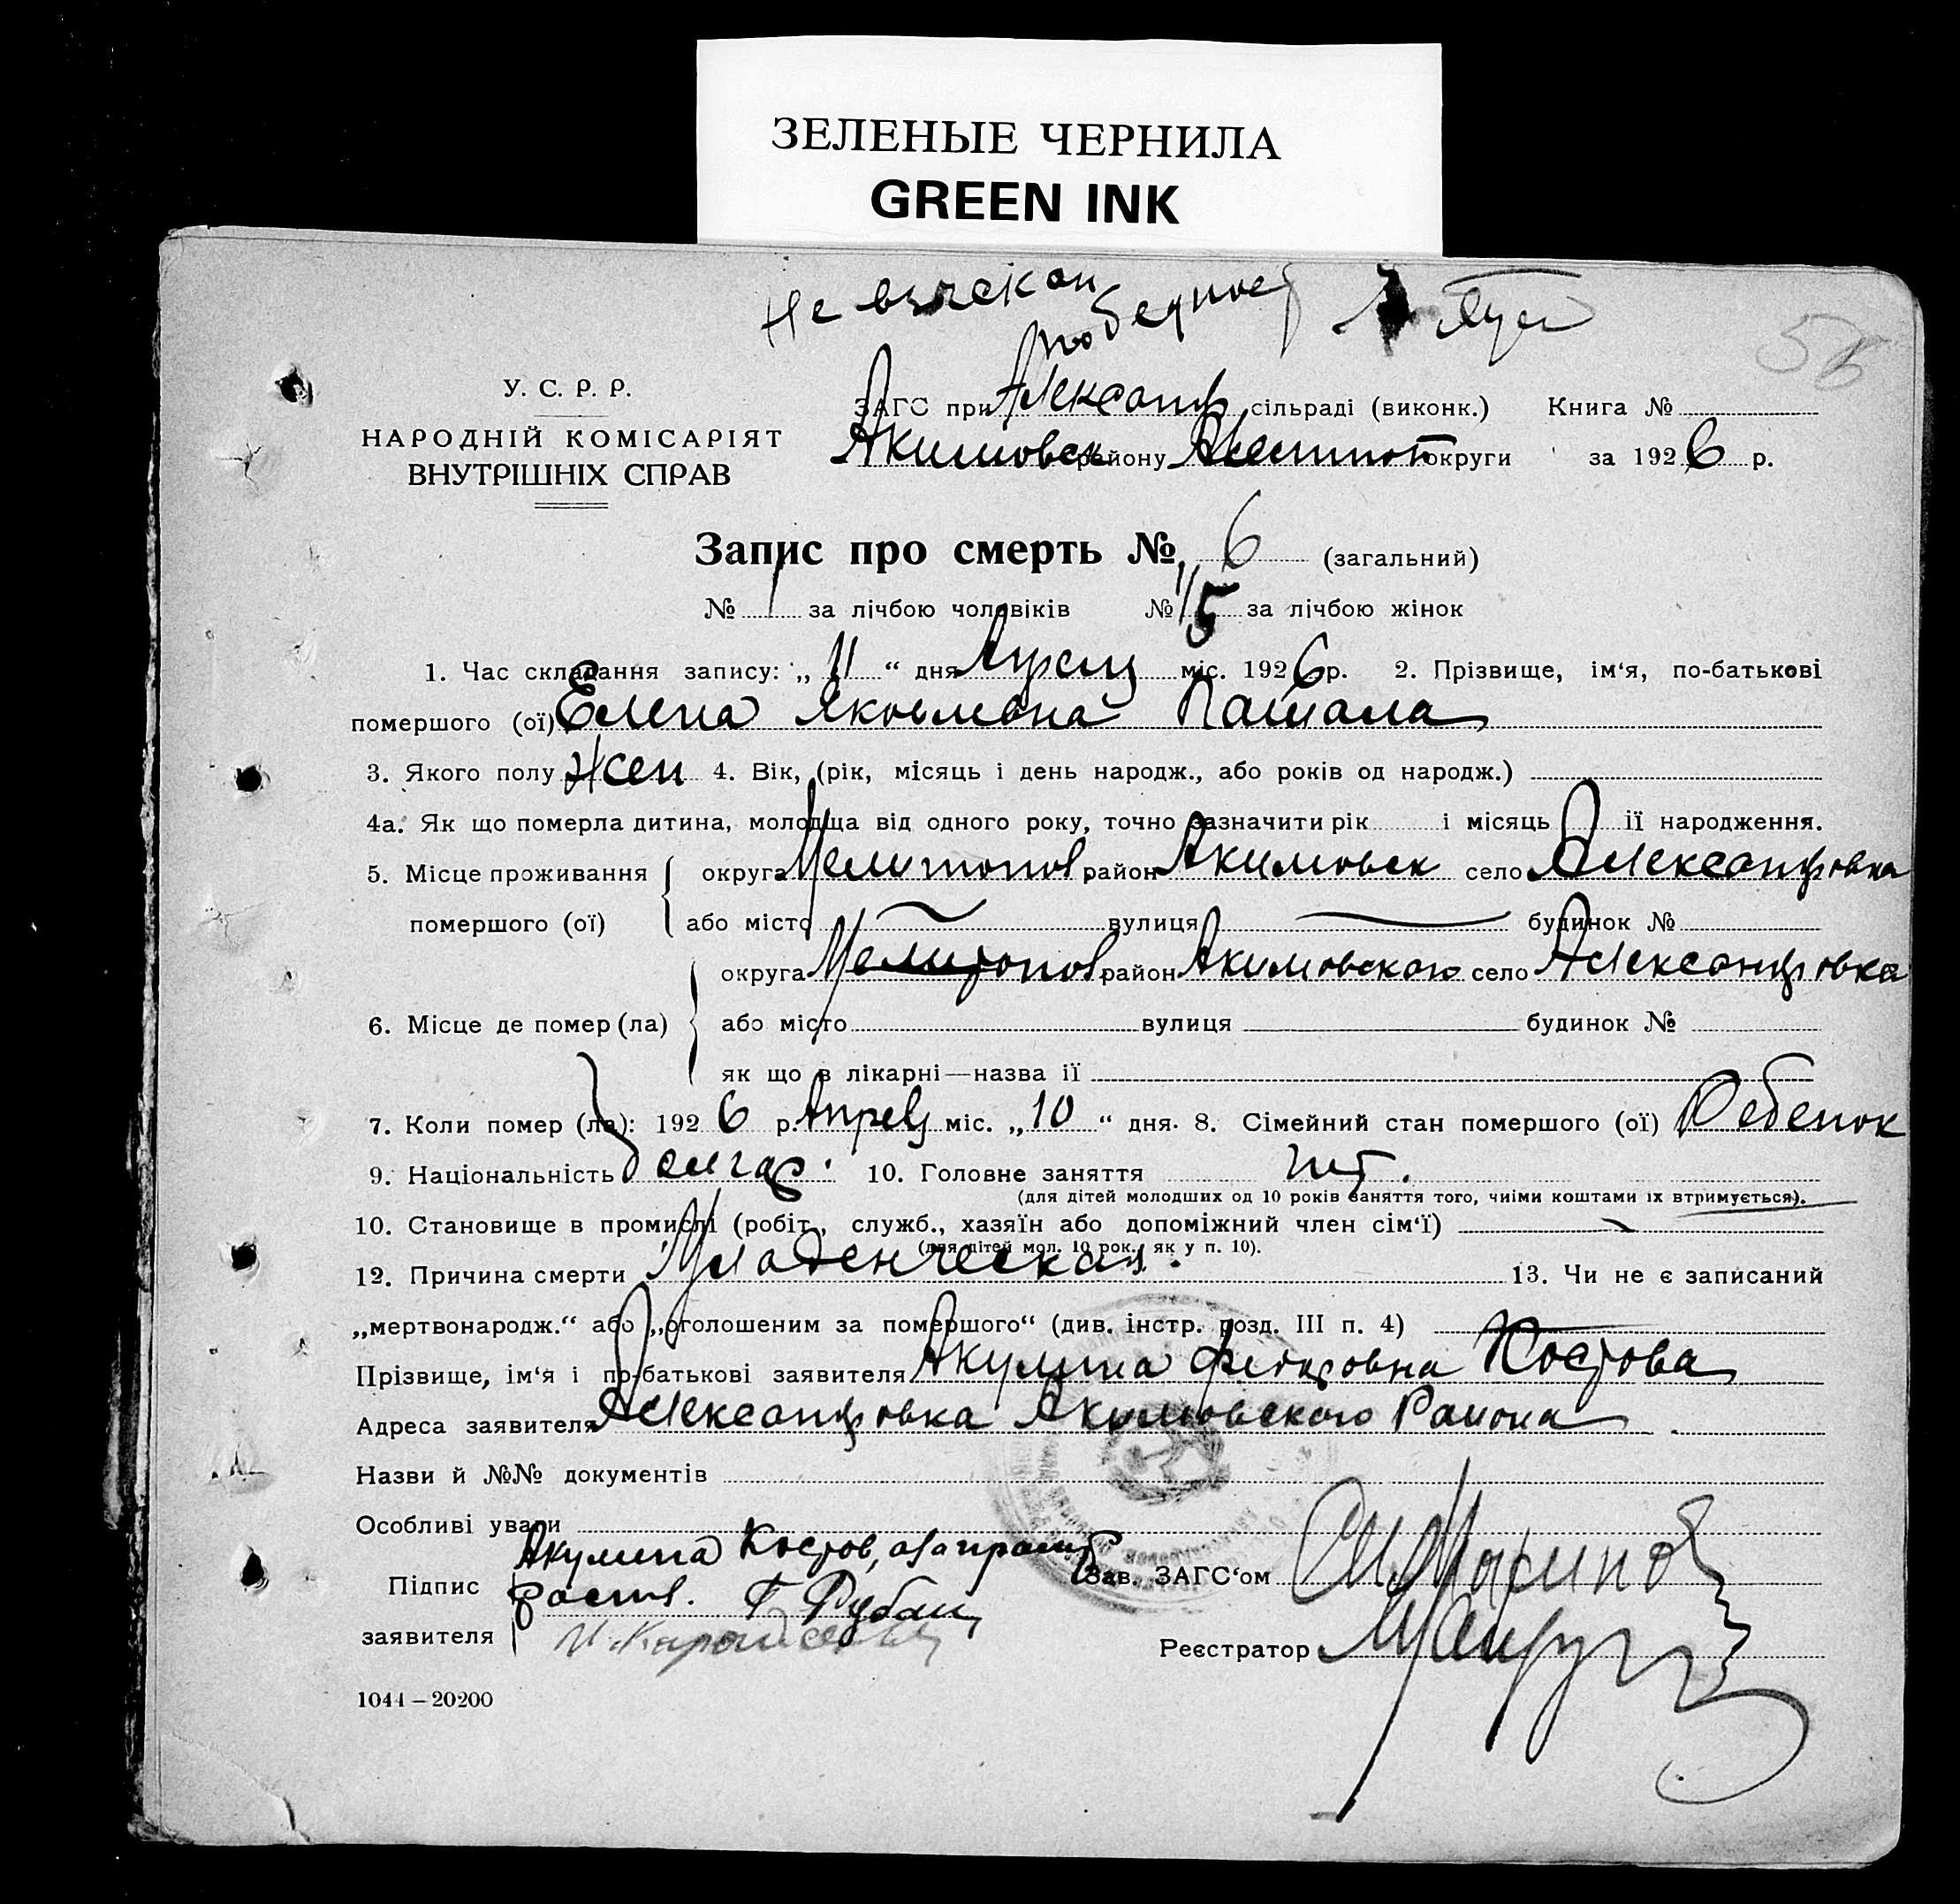 ЗЕЛЕНЫЕ ЧЕРНИЛА
GREEN INK
Не взыскан
по бедност
56
У. С. Р. Р.
НАРОДНІЙ КОМІСАРІЯТ
ВНУТРІШНІХ СПРАВ
ЗАГС при Александр сільраді (виконк.) Книга №
Акимовск району Мелитоп округи за 1926 р.
Запис про смерть № 6 (загальний)
№ за лічбою чоловіків № 5 за лічбою жінок
1. Час складання запису: „ 11 “ дня Апрель міс. 1926 р. 2. Прізвище, ім‘я, по-батькові
помершого (ої) Елена Яковлевна Пашала
3. Якого полу жен 4. Вік, (рік, місяць і день народж., або років од народж.)
4а. Як що померла дитина, молодща від одного року, точно зазначити рік і місяць ії народження.
5. Місце проживання округа Мелитопол район Акимовск село Александровка
помершого (ої) або місто вулиця будинок №
округа Мелитопол район Акимовского село Александровка
6. Місце де помер (ла) або місто вулиця будинок №
як що в лікарні—назва ії
7. Коли помер (ла): 1926 р. Апрель міс. „10“ дня. 8. Сімейний стан помершого (ої) Ребенок
9. Національність болгар. 10. Головне заняття нет.
(для дітей молодших од 10 років заняття того, чиїми коштами їх втримується).
10. Становище в промислі (робіт., служб., хазяїн або допоміжний член сім‘ї)
(для дітей мол. 10 рок., як у п. 10).
12. Причина смерти Младенческая. 13. Чи не є записаний
„мертвонародж.“ або „оголошеним за помершого“ (див. інстр. розд. III п. 4)
Прізвище, ім‘я і по-батькові заявителя Акулина Федоровна Костова
Адреса заявителя Александровка Акимовского Района
Назви й №№ документів
Особливі уваги
Акулина Костов,
Підпис Г Рубан Зав. ЗАГС‘ом
заявителя
Реєстратор
1044—20200